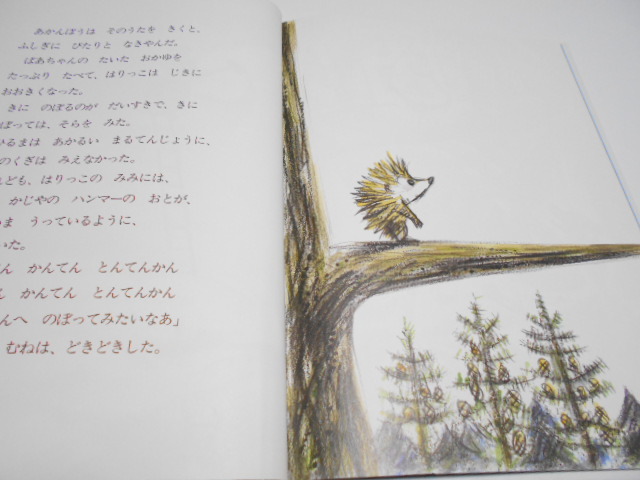 あかんぼうは　そのうたを　きくと、
ふしぎに　ぴたりと　なきやんだ。
ばあちゃんの　たいた　おかゆを
たっぷり　たべて、はりっこは　じきに
おおきくなった。
きに　のぼるのが　だいすきで、きに
ぼっては、そらを　みた。
ひるまは　あかるい　まるてんじょうに、
のくぎは　みえなかった。
ども、はりっこの　みみには、
かじやの　ハンマーの　おとが、
ま　うっているように、
いた。
ん　かんてん　とんてんかん
かんてん　とんてんかん
んへ　のぼってみたいなあ」
むねは、どきどきした。